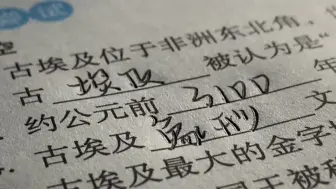 尝试
古埃及位于非洲东北角，
古埃及被认为是"
约公元前3100年
古埃及象形文
古埃及最大的金字